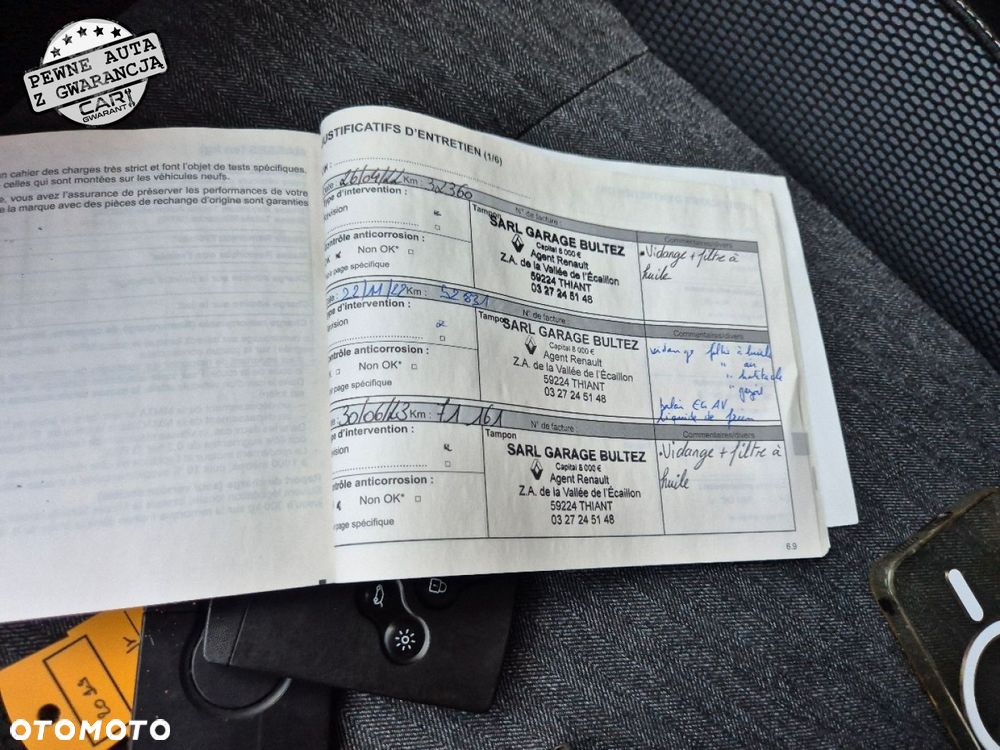 PEWNE AUTA
Z GWARANCJĄ
CAR
GWARANT
n cahier des charges très strict et font l'objet de tests spécifiques.
celles qui sont montées sur les véhicules neufs.
e, vous avez l'assurance de préserver les performances de votre
e la marque avec des pièces de rechange d'origine sont garanties
USTIFICATIFS D'ENTRETIEN (1/6)
26/04/22 Km : 32360
Type d'intervention :
N° de facture :
Tampon
SARL GARAGE BULTEZ
Capital 8 000 €
Agent Renault
Z.A. de la Vallée de l'Écaillon
59224 THIANT
03 27 24 51 48
Commentaires/divers
Vidange + filtre à
huile
ontrôle anticorrosion :
OK Non OK*
page spécifique
22/11/22 Km : 52831
N° de facture :
pe d'intervention :
Tampon
SARL GARAGE BULTEZ
Capital 8 000 €
Agent Renault
Z.A. de la Vallée de l'Écaillon
59224 THIANT
03 27 24 51 48
Commentaires/divers
vidange filtre à huile
" air
" habitacle
" gazoil
balai EG AV
liquide de frein
ntrôle anticorrosion :
Non OK*
page spécifique
30/06/23 Km : 71 161
N° de facture :
pe d'intervention :
Tampon
SARL GARAGE BULTEZ
Capital 8 000 €
Agent Renault
Z.A. de la Vallée de l'Écaillon
59224 THIANT
03 27 24 51 48
Commentaires/divers
Vidange + filtre à
huile
ntrôle anticorrosion :
Non OK*
page spécifique
6.9
OTOMOTO